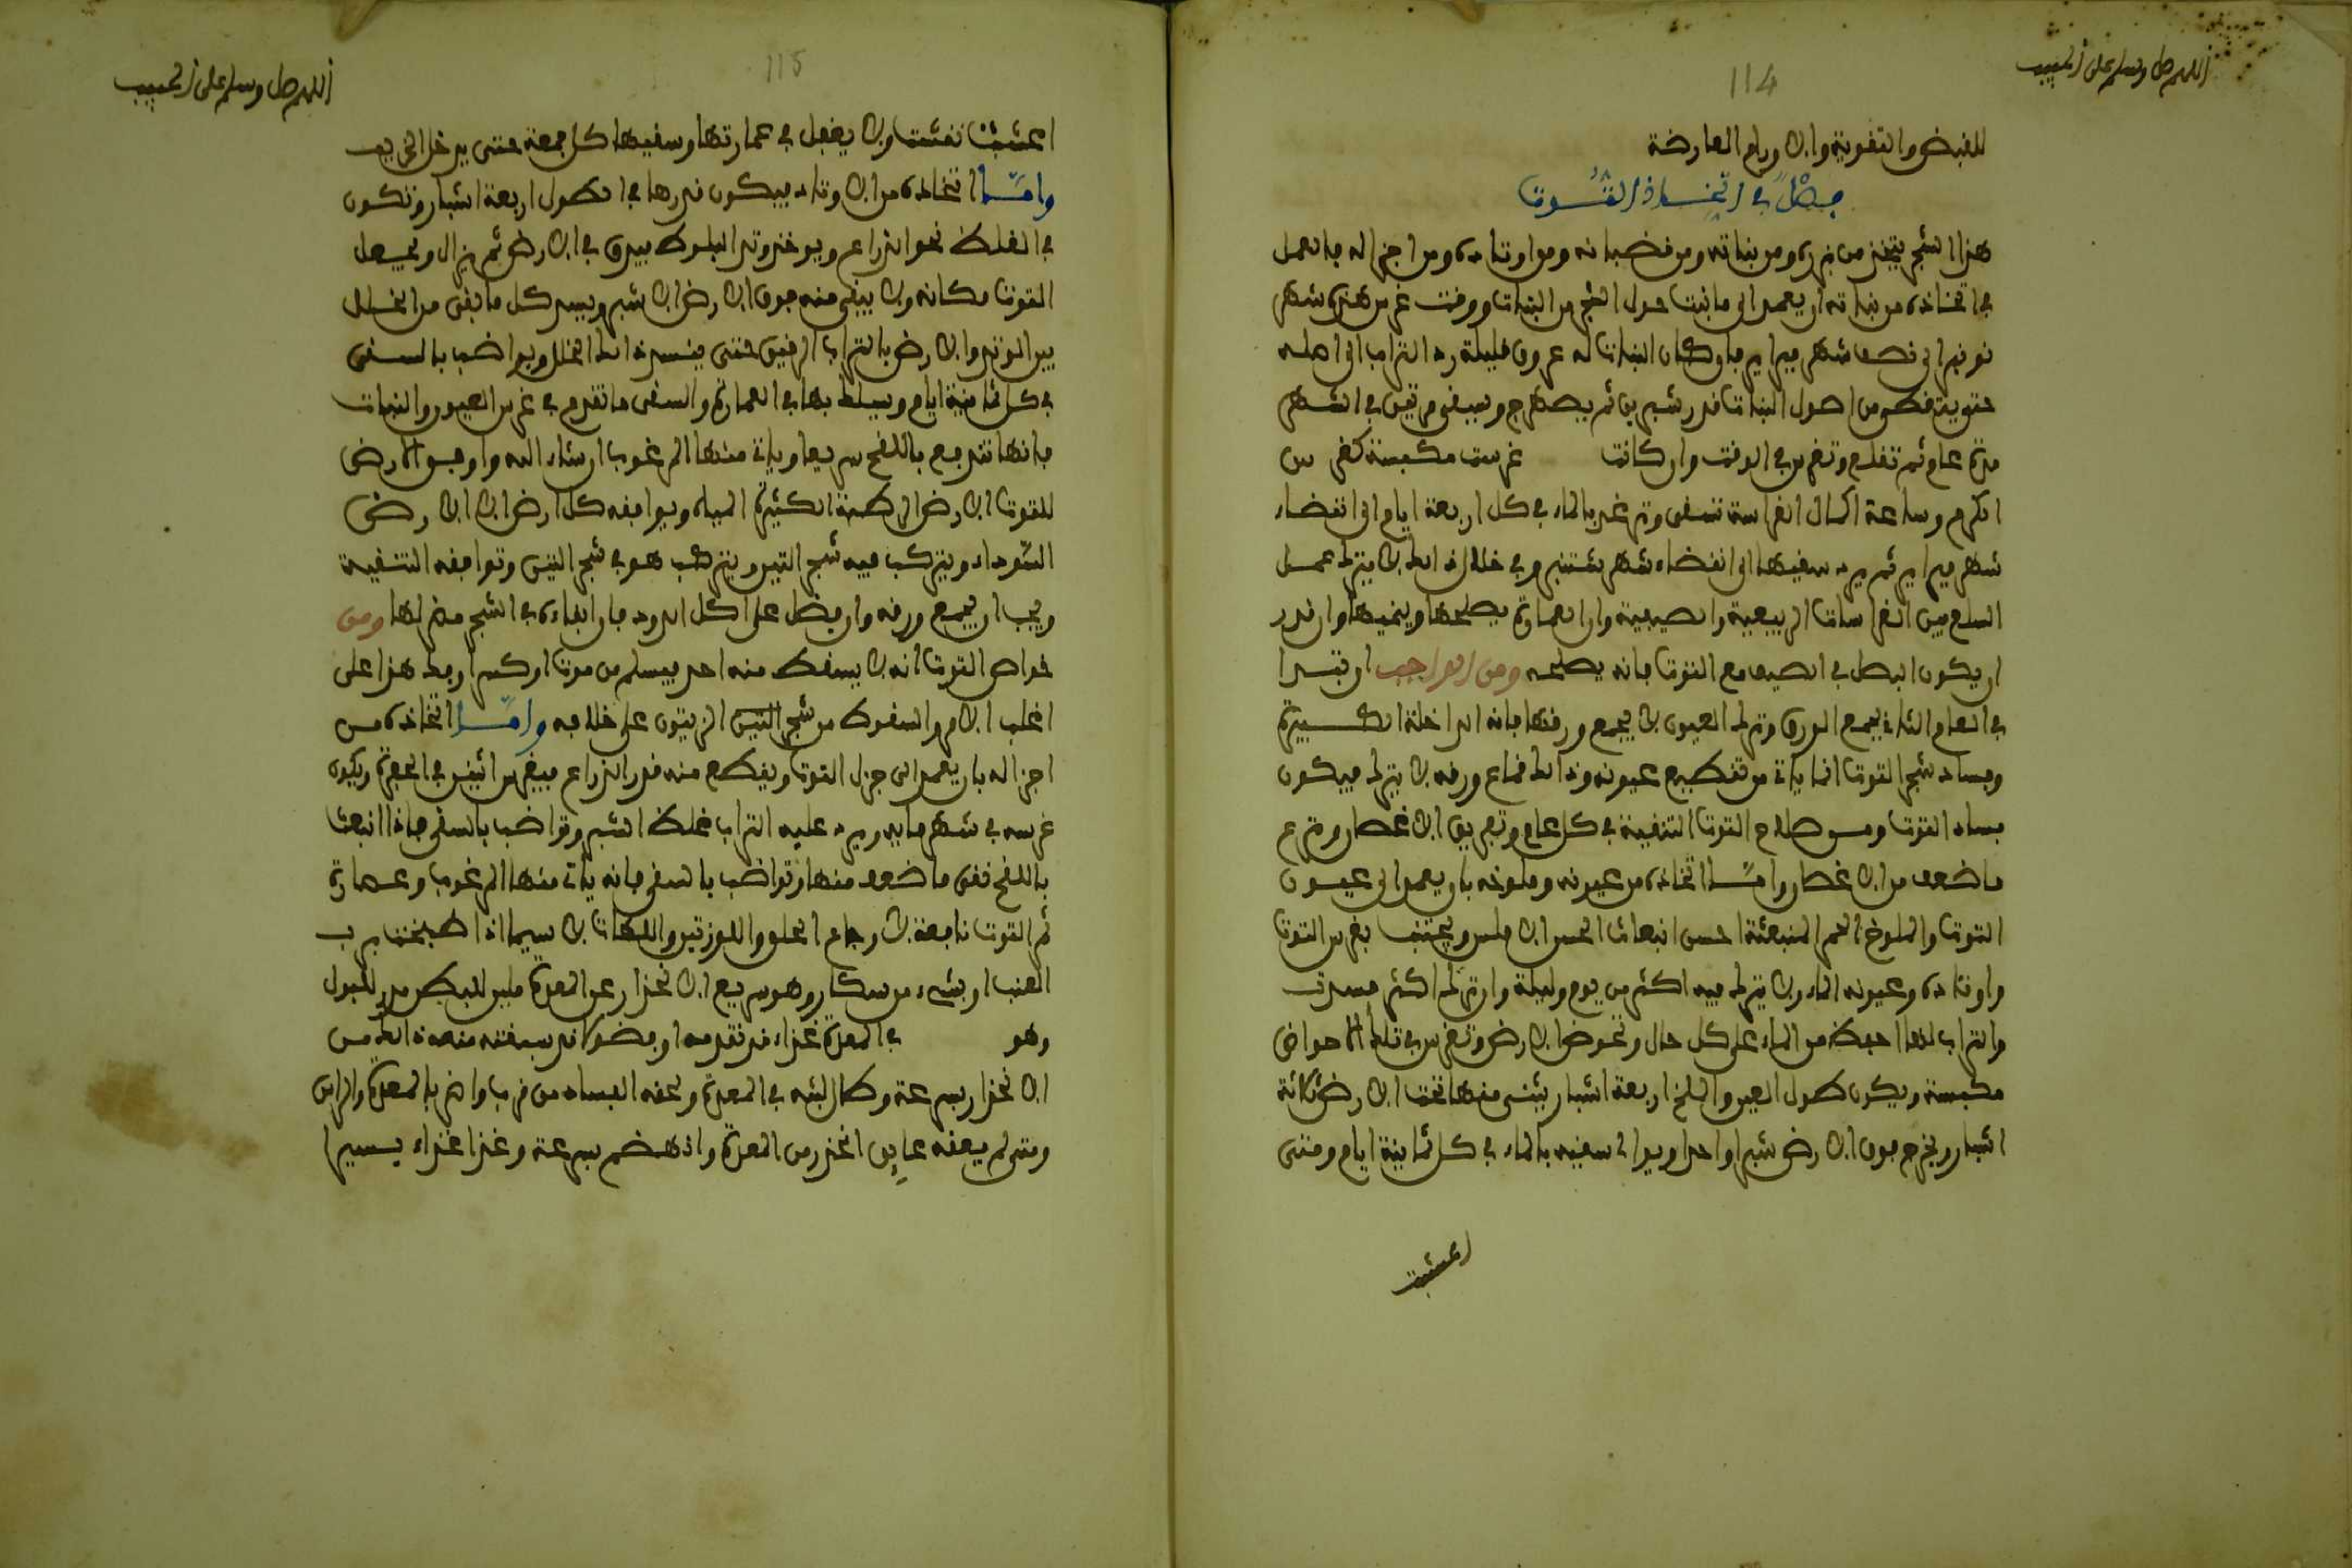 اللهم صل وسلم على الحبيب
114
للقبض والتقوية والاورام العارضة
فصل في اتخاذ التوت
هذا الشجر يتخذ من بزره ومن نباته ومن قضبانه ومن اوتاده ومن اجزاله فالعمل
في اتخاذه من نباته ان يعمد الى ما نبت حول الشجر من النبات ووقت غرس هذه شهر
نونبر الى نصف شهر فبراير فان كان النبات له عروق قليلة رد التراب الى اصله
حتى يغطى من اصول النبات قدر شبرين ثم يصهرج ويسقى مرتين في الشهر
مدة عام ثم تقلع وتغرس في الوقت وان كانت غرست مكبسة كغرس
الكرم وساعة اكمال الغراسة تسقى وترغد بالماء في كل اربعة ايام الى انقضاء
شهر فبراير ثم يرد سقيها الى انقضاء شهر شتنبر وفي خلال ذالك لا يترك عمل
السلع بين الغراسات الربيعية والصيفية وان العمارة يصلحها وينميها وان قدر
ان يكون البصل في الصيف مع التوت فانه يصلحه ومن الواجب ان تبدا
في العام الثاني بجمع الورق وترك العيون لا يجمع ورقها فانه الداخلة الكبيرة
وفساد شجر التوت انما ياتي من تقطيع عيونه وذالك قماع ورقه لا يترك فيكون
فساد التوت ومن صلاح التوت التنقية في كل عام وتفريق الاغصان ونزع
ما ضعف من الاغصان واما اتخاذه من عيونه وملوخه بان يعمد الى عيون
التوت والملوخ الحمر المنبعثة احسن انبعاث الحسن الاملس ويجتنب بغرس التوت
واوتاده وعيونه الماء ولا يترك فيه اكثر من يوم وليلة وان ترك اكثر فسدت
والتراب لها احفظ من الماء على كل حال وتحوض الارض وتغرس في تلك الاحواض
مكبسة ويكون طول العين والملخ اربعة اشبار يثنى منها تحت الارض ثلاثة
اشبار ويخرج فوق الارض شبرا واحدا ويوالى سقيه بالماء في كل ثمانية ايام ومتى
اعشبت
اللهم صل وسلم على الحبيب
115
اعشبت نقشت ولا يغفل في عمارتها وسقيها كل جمعة حتى يدخل الخريف
واما اتخاذه من الاوتاد فيكون قدرها في الطول اربعة اشبار وتكون
في الغلظ نحو الذراع ويوخذ وتد البلوط فيدق في الارض ثم يزال ويجعل
التوت مكانه ولا يبقى منه فوق الارض الا شبر ويسد كل ما بقى من الخلل
بين الوتد والارض بالتراب الرقيق حتى ينسد ذالك الخلل ويواضب بالسقى
في كل ثمانية ايام ويسلك بها في العمارة والسقى ما تقدم في غرس العيون والنبات
فانها تندفع باللقح سريعا وياتي منها المرغوب ان شاء الله واوفق الارض
للتوت الارض الرطبة الكثيرة المياه ويوافقه كل ارض الا الارض
السوداء ويتركب فيه شجر التين ويتركب هو في شجر التين وتوافقه التنقية
ويجب ان يجمع ورقه وان فضل على اكل الدود فان ابقاءه في الشجر مضر لها ومن
خواص التوت انه لا يسقط منه احد فيسلم من موت او كسر او فك هذا على
اغلب الامر والسقوط من شجر التين الزيتون على خلافه واما اتخاذه من
اجزاله بان يعمد الى جزل التوت ويقطع منه قدر الذراع فيغرس اثنين في الحفرة ويكون
غرسه في شهر مايه ويرد عليه التراب غلظ الشبر وتواضب بالسقى فاذا انبعث
باللقح نقى ما ضعف منها وتواضب بالسقى فانه ياتي منها المرغوب وعصارة
ثمر التوت نافعة لاوجاع الحلق واللوزتين واللهات لا سيما اذا طبخت برب
العنب او بشيء من سكر وهو سريع الانحدار عن المعدة ملين للبطن مدر للبول
وهو في المعدة غذاء قد تقدمه او فضولا قد سبقته منعه ذالك من
الانحدار بسرعة وطال لبثه في المعدة ولحقه الفساد من قرب واضر بالمعدة والراس
ومتى لم يعقه عايق انحدر من المعدة وانهضم بسرعة وغذا غذاء يسيرا